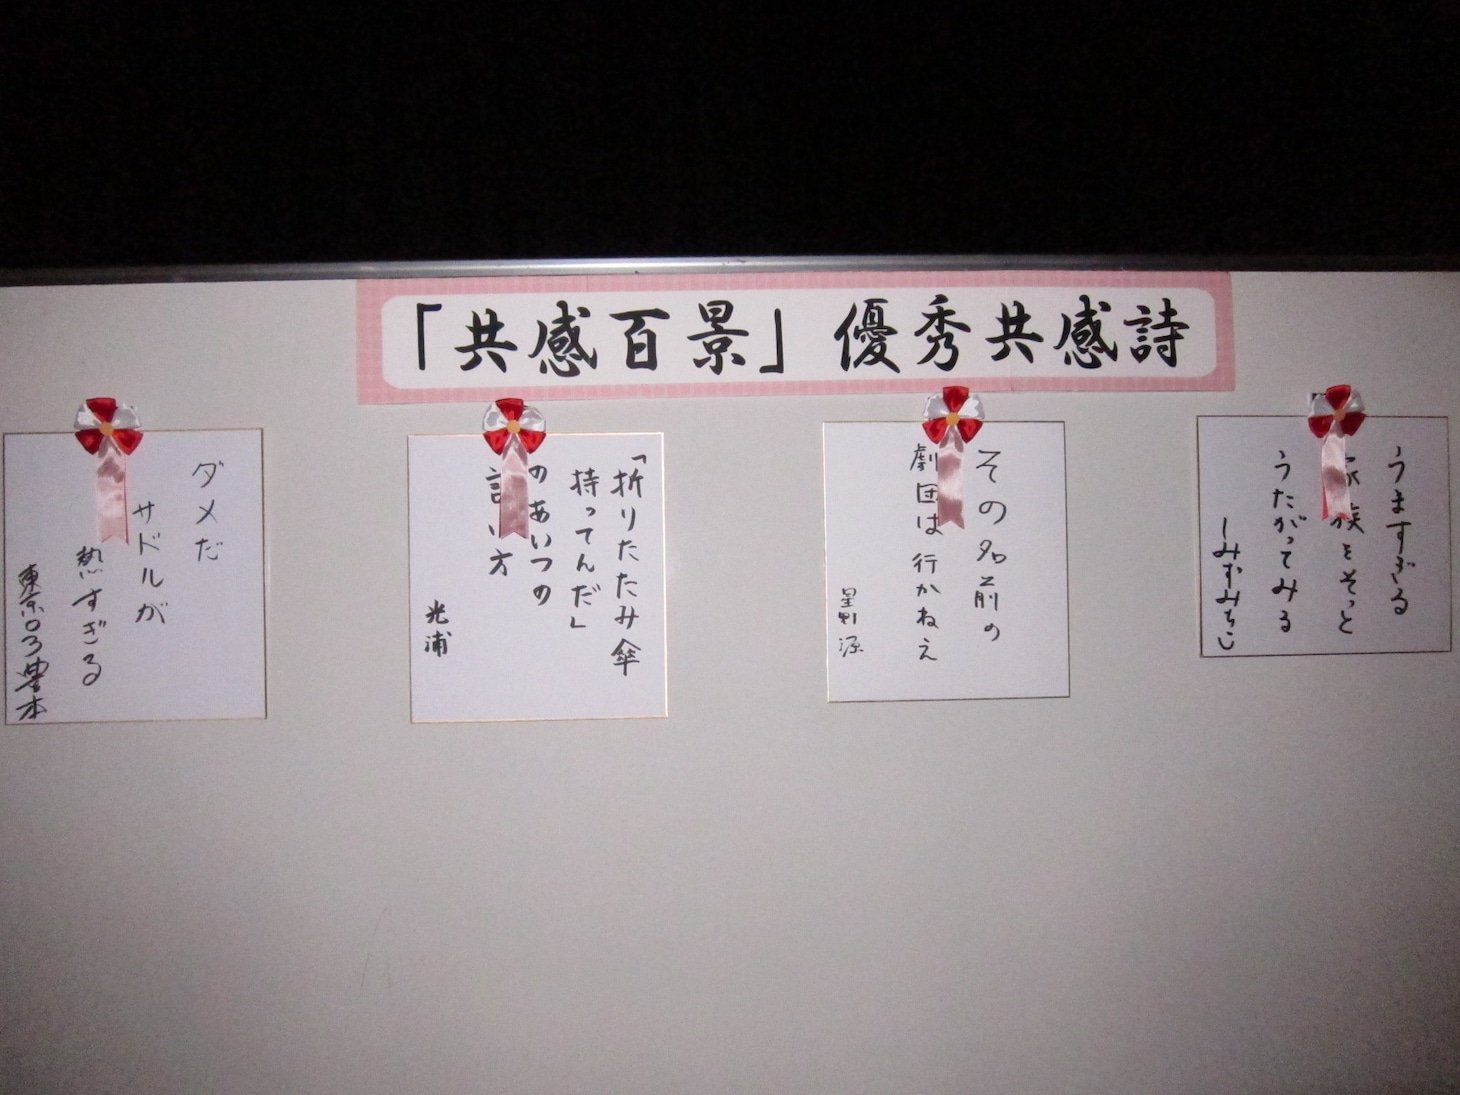 「共感百景」優秀共感詩
うますぎる
家族をそっと
うたがってみる
しみずみちこ
その名前の
劇団は行かねえ
星野源
「折りたたみ傘
持ってんだ」
のあいつの
言い方
光浦
ダメだ
サドルが
熱すぎる
東京03豊本